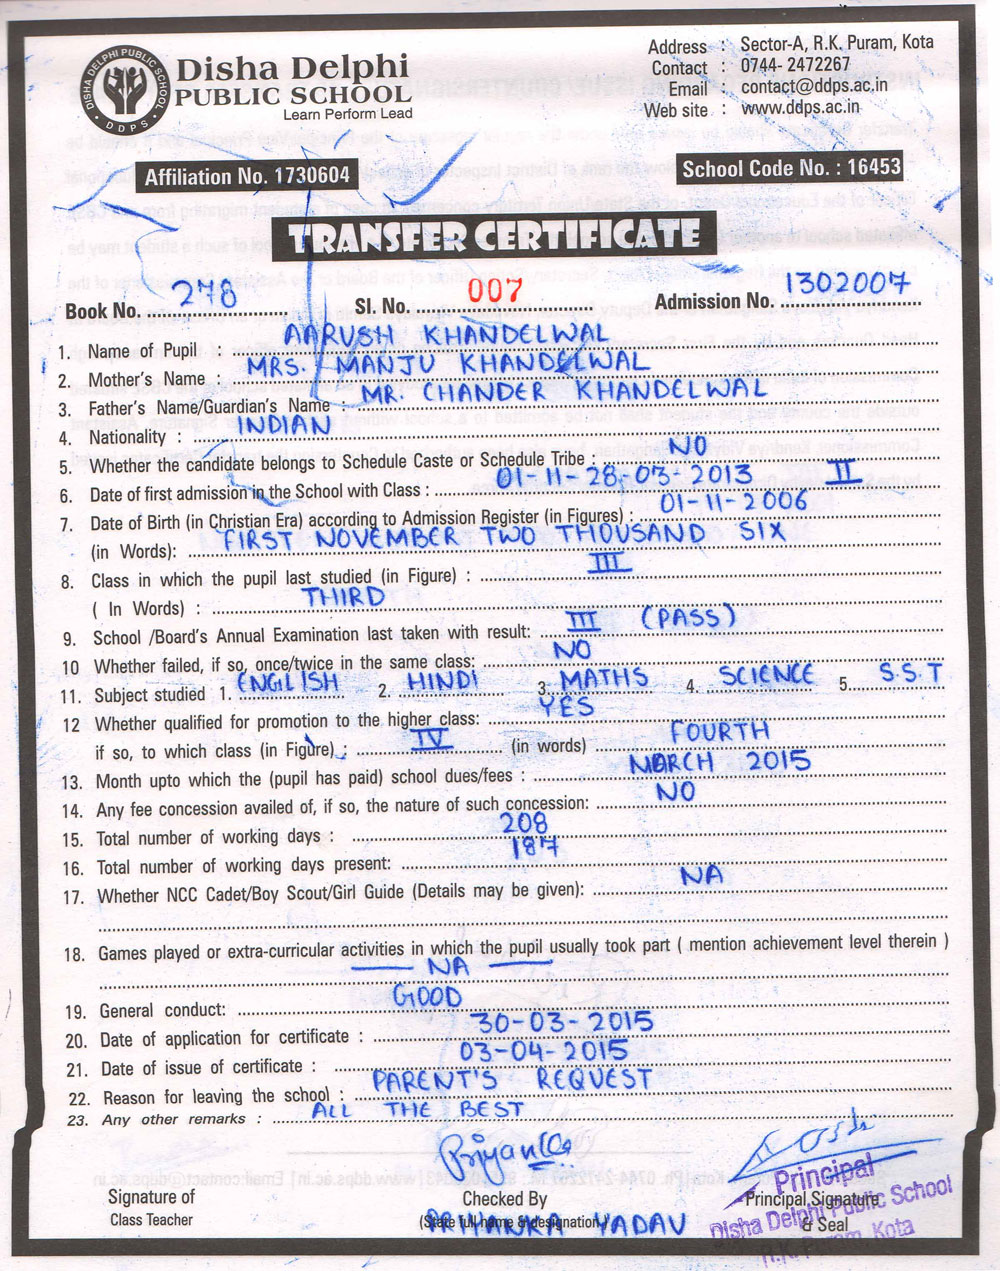 DISHA DELPHI PUBLIC SCHOOL
D D P S
Disha Delphi
PUBLIC SCHOOL
Learn Perform Lead
Address : Sector-A, R.K. Puram, Kota
Contact : 0744- 2472267
Email : contact@ddps.ac.in
Web site : www.ddps.ac.in
Affiliation No. 1730604
School Code No. : 16453
TRANSFER CERTIFICATE
Book No. 278 Sl. No. 007 Admission No. 1302007
1. Name of Pupil AARUSH KHANDELWAL
2. Mother's Name : MRS. MANJU KHANDELWAL
3. Father's Name/Guardian's Name MR. CHANDER KHANDELWAL
4. Nationality : INDIAN
5. Whether the candidate belongs to Schedule Caste or Schedule Tribe : NO
6. Date of first admission in the School with Class : 28-03-2013 II
7. Date of Birth (in Christian Era) according to Admission Register (in Figures) : 01-11-2006
(in Words): FIRST NOVEMBER TWO THOUSAND SIX
8. Class in which the pupil last studied (in Figure) : III
( In Words) : THIRD
9. School /Board's Annual Examination last taken with result: III (PASS)
10 Whether failed, if so, once/twice in the same class: NO
11. Subject studied 1. ENGLISH 2. HINDI 3. MATHS 4. SCIENCE 5. S.S.T
12 Whether qualified for promotion to the higher class: YES
if so, to which class (in Figure) : IV (in words) FOURTH
13. Month upto which the (pupil has paid) school dues/fees : MARCH 2015
14. Any fee concession availed of, if so, the nature of such concession: NO
15. Total number of working days : 208
16. Total number of working days present: 187
17. Whether NCC Cadet/Boy Scout/Girl Guide (Details may be given): NA
18. Games played or extra-curricular activities in which the pupil usually took part ( mention achievement level therein )
NA
19. General conduct: GOOD
20. Date of application for certificate : 30-03-2015
21. Date of issue of certificate : 03-04-2015
22. Reason for leaving the school : PARENT'S REQUEST
23. Any other remarks : ALL THE BEST
Priyanka
Principal
Signature of
Class Teacher
Checked By
(State full name & designation)
PRIYANKA YADAV
Principal Signature
& Seal
Disha Delphi Public School
R.K. Puram, Kota